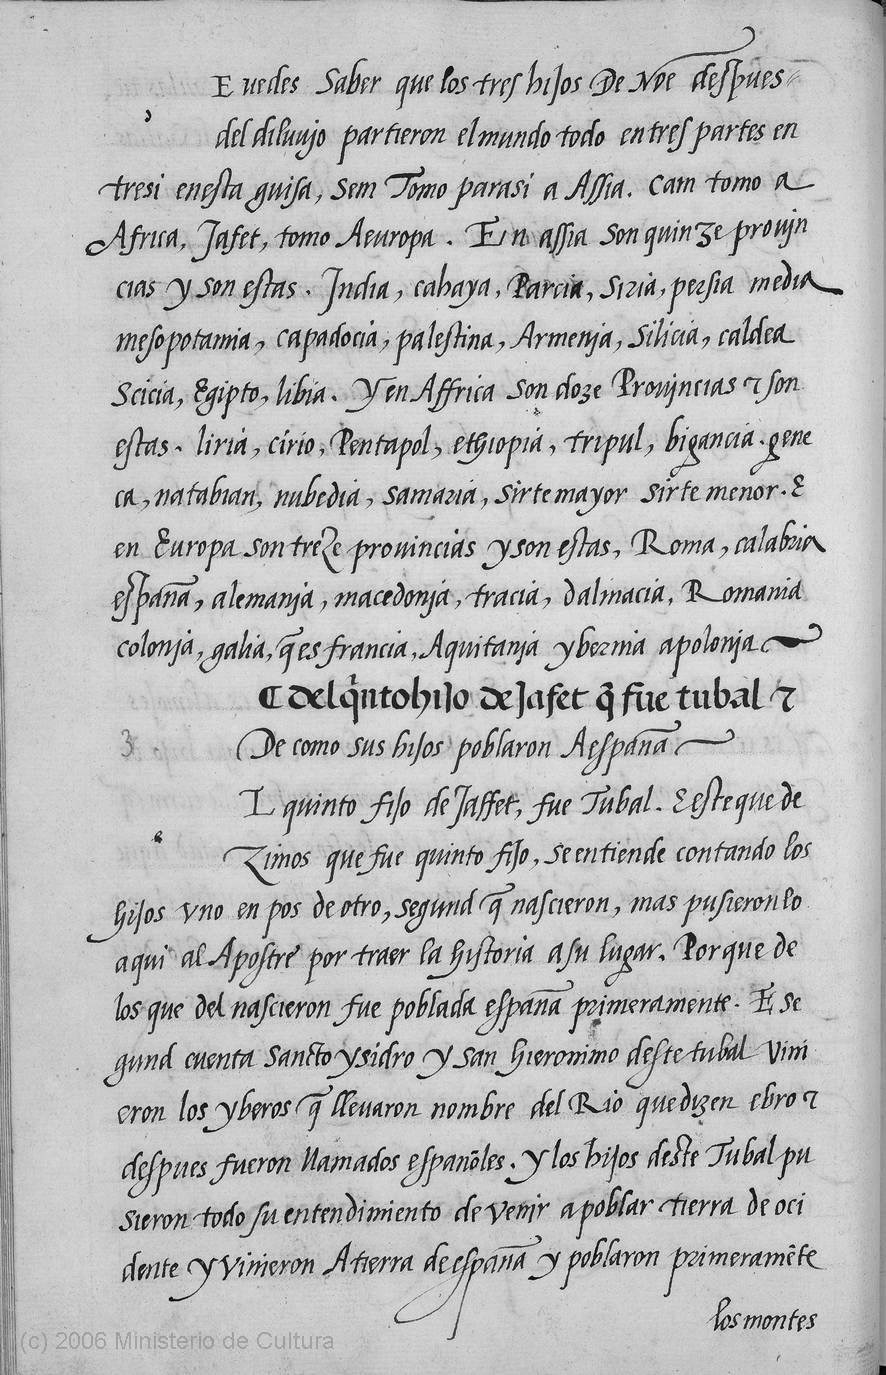 E uedes saber que los tres hijos De Noe despues
del diluujo partieron el mundo todo en tres partes en
tresi enesta guisa, Sem Tomo parasi a Assia. Cam tomo a
Africa, Jafet, tomo Aeuropa. En assia son quinze proujn
cias y son estas. India, cabaya, Parcia, siria, persia media
mesopotamia, capadocia, palestina, Armenja, Silicia, caldea
Scicia, Egipto, libia. Y en Affrica son doze Proujncias ⁊ son
estas. liria, cirio, Pentapol, ethiopia, tripul, bigancia. gene
ca, natabian, nubedia, samaria, sirte mayor sirte menor. E
en Europa son treze prouincias y son estas, Roma, calabria
españa, alemanja, macedonja, tracia, dalmacia, Romania
colonja, galia, q̃ es francia, Aquitanja ybernia apolonja
C del q̃nto hijo de Jafet q̃ fue tubal ⁊
3 De como sus hijos poblaron A españa
L quinto fijo de Jaffet, fue Tubal. E este que de
Zimos que fue quinto fijo, se entiende contando los
hijos vno en pos de otro, segund q̃ nascieron, mas pusieronlo
aqui al Apostre por traer la historia a su lugar. Porque de
los que del nascieron fue poblada españa primeramente. E se
gund cuenta Sancto ysidro y san hieronimo deste tubal vini
eron los yberos q̃ lleuaron nombre del Rio que dizen ebro ⁊
despues fueron llamados españoles. y los hijos deste Tubal pu
sieron todo su entendimiento de venjr a poblar tierra de oci
dente y vinieron A tierra de españa y poblaron primeramẽte
los montes
(c) 2006 Ministerio de Cultura